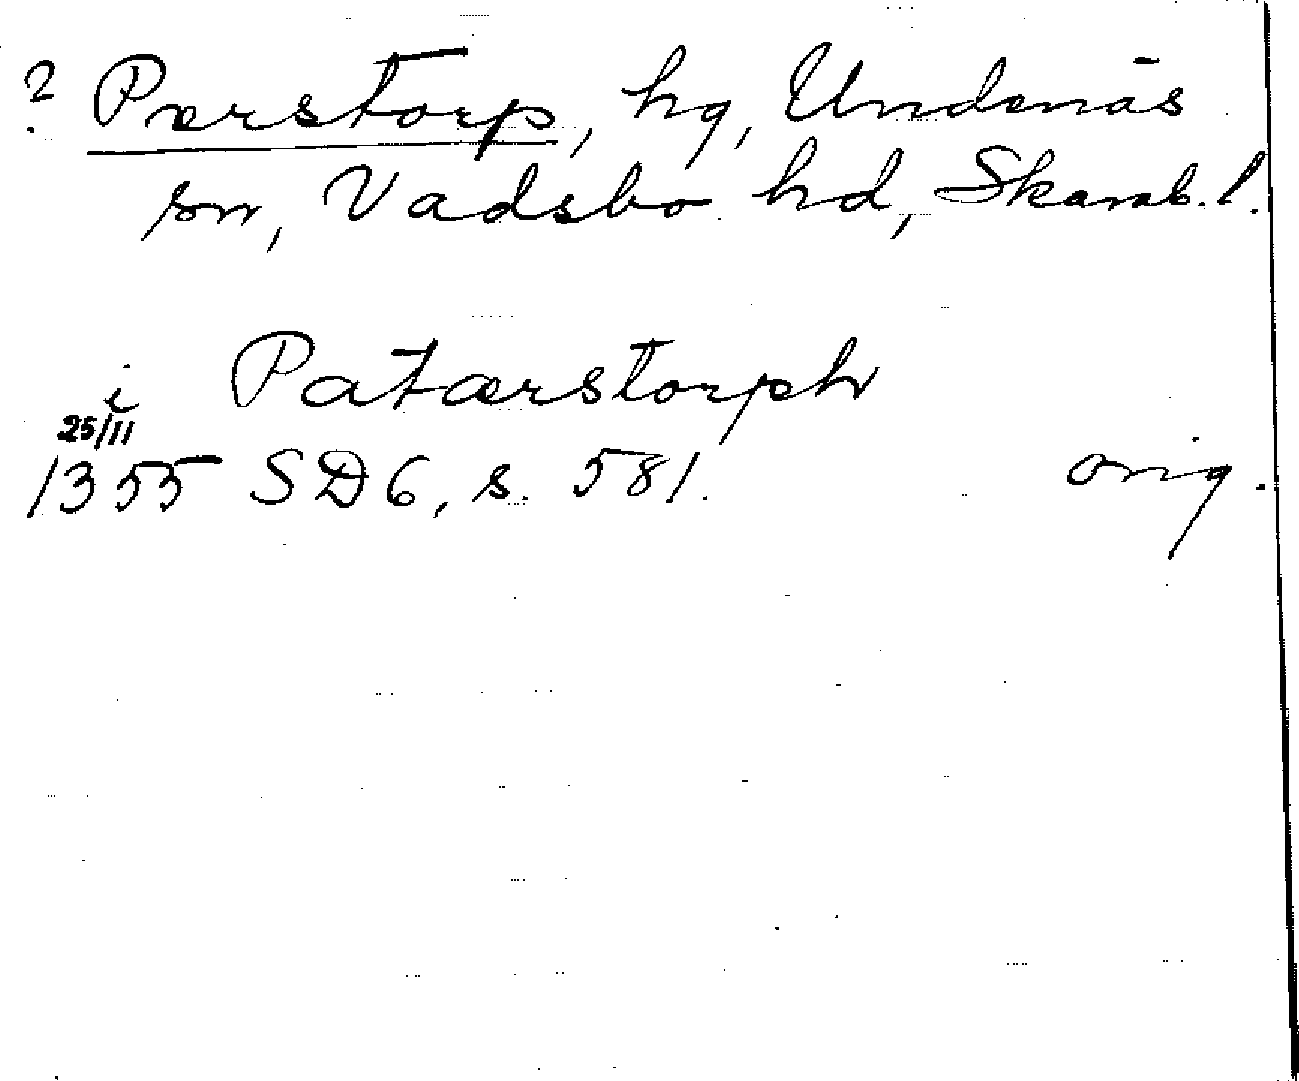 ? Perstorp, hg, Undenäs
sn, Vadsbo hd, Skarab. l.
i Patærstorph
25/11
1355 SD 6, s. 581. orig.